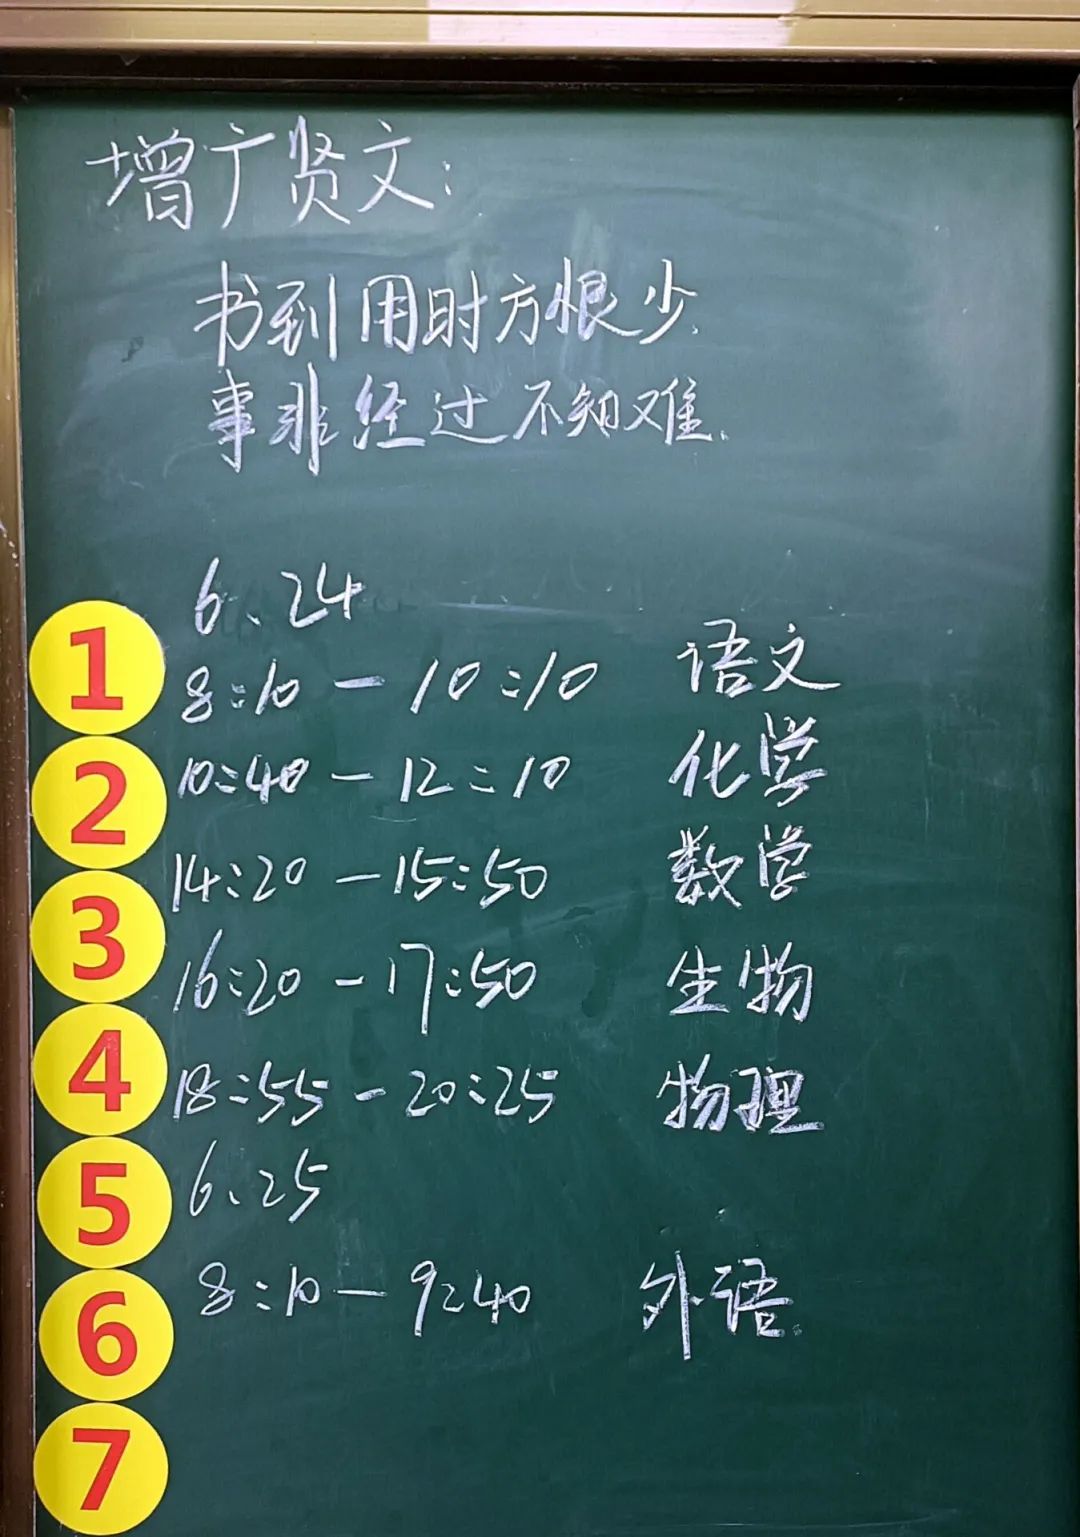 增广贤文:
书到用时方恨少.
事非经过不知难.
6、24
1 8:10 - 10:10 语文
2 10:40 - 12:10 化学
3 14:20 - 15:50 数学
16:20 - 17:50 生物
4 18:55 - 20:25 物理
5 6、25
6 8:10 - 9:40 外语.
7